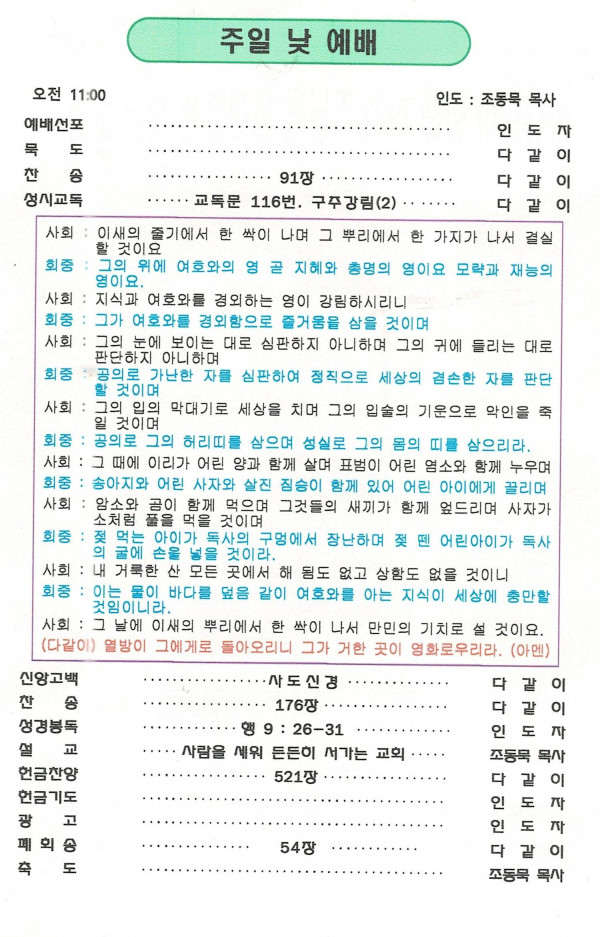 주일 낮 예배
오전 11:00 인도 : 조동묵 목사
예배선포 ······································ 인 도 자
묵 도 ······································ 다 같 이
찬 송 ················ 91장 ················· 다 같 이
성시교독 ······ 교독문 116번. 구주강림(2) ·· ····· 다 같 이
사회 : 이새의 줄기에서 한 싹이 나며 그 뿌리에서 한 가지가 나서 결실
할 것이요
회중 : 그의 위에 여호와의 영 곧 지혜와 총명의 영이요 모략과 재능의
영이요.
사회 : 지식과 여호와를 경외하는 영이 강림하시리니
회중 : 그가 여호와를 경외함으로 즐거움을 삼을 것이며
사회 : 그의 눈에 보이는 대로 심판하지 아니하며 그의 귀에 들리는 대로
판단하지 아니하며
회중 : 공의로 가난한 자를 심판하여 정직으로 세상의 겸손한 자를 판단
할 것이며
사회 : 그의 입의 막대기로 세상을 치며 그의 입술의 기운으로 악인을 죽
일 것이며
회중 : 공의로 그의 허리띠를 삼으며 성실로 그의 몸의 띠를 삼으리라.
사회 : 그 때에 이리가 어린 양과 함께 살며 표범이 어린 염소와 함께 누우며
회중 : 송아지와 어린 사자와 살진 짐승이 함께 있어 어린 아이에게 끌리며
사회 : 암소와 곰이 함께 먹으며 그것들의 새끼가 함께 엎드리며 사자가
소처럼 풀을 먹을 것이며
회중 : 젖 먹는 아이가 독사의 구멍에서 장난하며 젖 뗀 어린아이가 독사
의 굴에 손을 넣을 것이라.
사회 : 내 거룩한 산 모든 곳에서 해 됨도 없고 상함도 없을 것이니
회중 : 이는 물이 바다를 덮음 같이 여호와를 아는 지식이 세상에 충만할
것임이니라.
사회 : 그 날에 이새의 뿌리에서 한 싹이 나서 만민의 기치로 설 것이요.
(다같이) 열방이 그에게로 돌아오리니 그가 거한 곳이 영화로우리라. (아멘)
신앙고백 ················사도신경 ·············· 다 같 이
찬 송 ················· 176장················ 다 같 이
성경봉독 ············행 9 : 26-31 ············ 인 도 자
설 교 ····· 사람을 세워 든든히 서가는 교회 ····· 조동묵 목사
헌금찬양 ················ 521장················ 다 같 이
헌금기도 ······································ 인 도 자
광 고 ······································ 인 도 자
폐 회 송 ·············· 54장 ··········· 다 같 이
축 도 ······································ 조동묵 목사